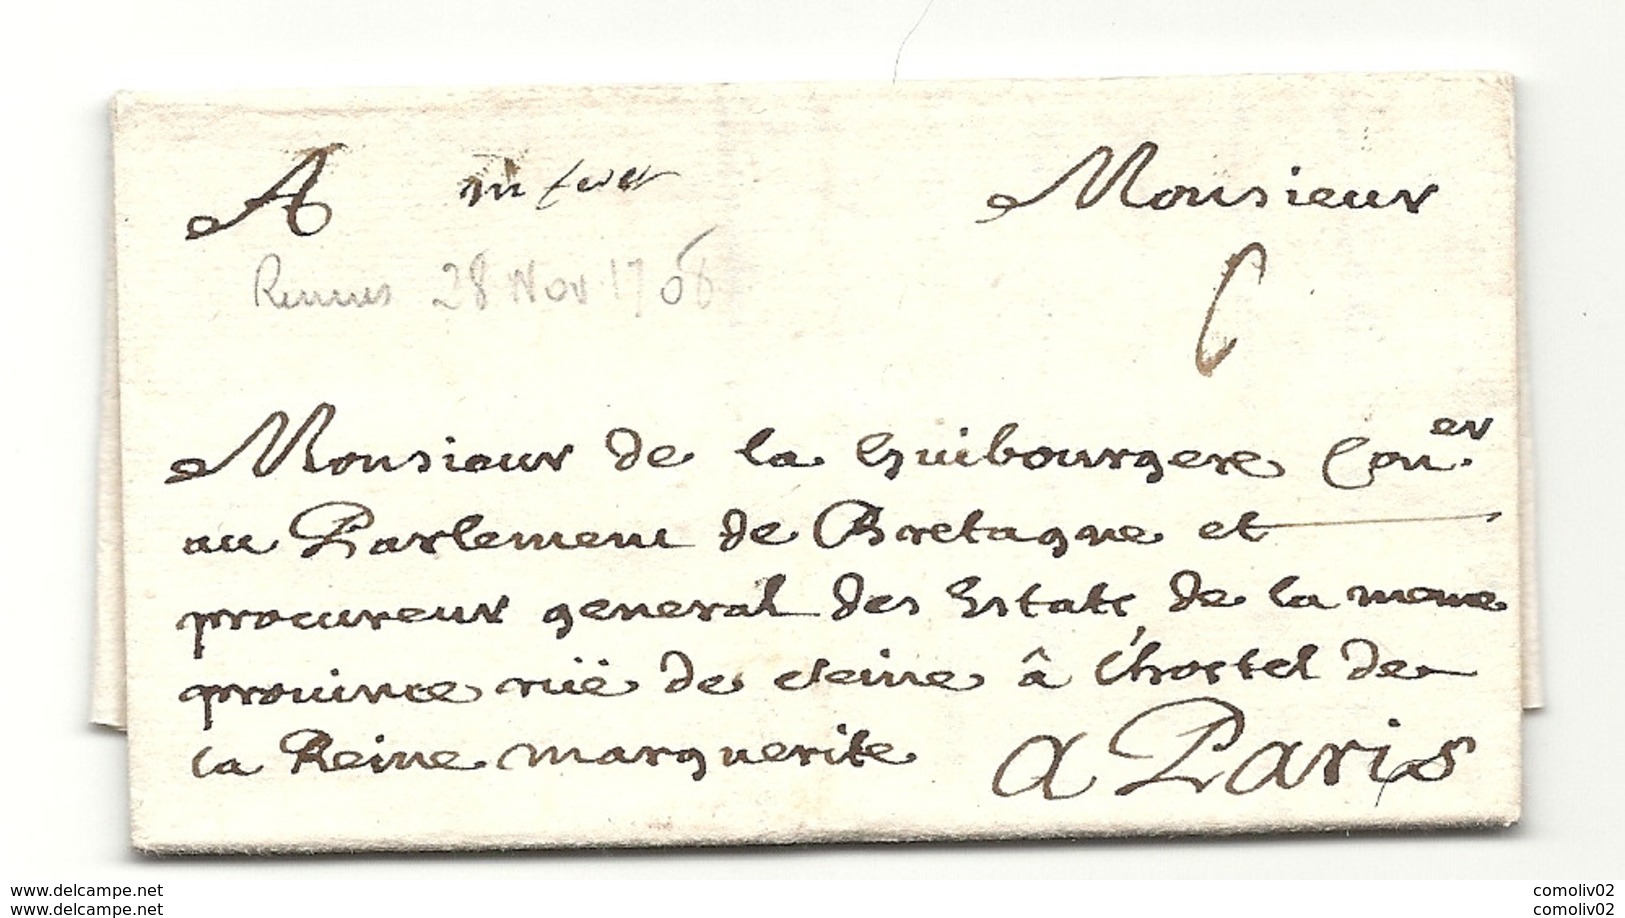 A Monsieur
Rennes 28 Nov. 1708
6
Monsieur de la Guibourgere Con.er
au Parlement de Bretagne et
procureur general des Estats de la meme
prouince ruë de Seine â l'hostel de
la Reine marguerite a Paris
www.delcampe.net comoliv02
www.delcampe.net comoliv02